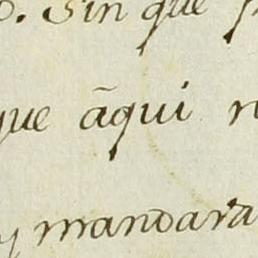 o. Sin que
que ãqui
y mandara